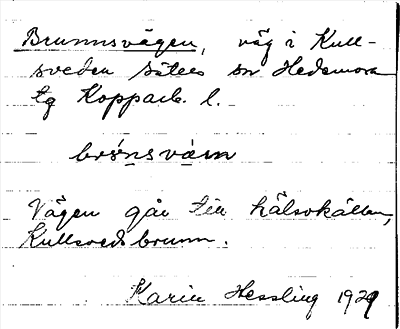 Brunnsvägen, väg i Kull-
sveden Säters sn Hedemora
tg Kopparb. l.
brónsvàm
Vägen går till hälsokällan,
Kullsveds brunn.
Karin Hessling 1929